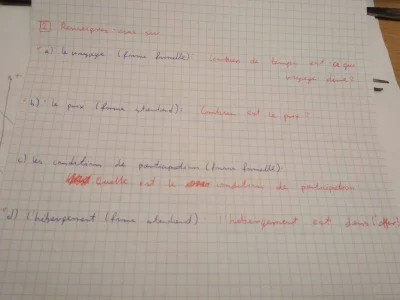 2 Renseignez-vous sur
a) le voyage (forme formelle): Combien de temps est-ce que
voyage dure?
b) le prix (forme standard): Combien est le prix?
c) les conditions de participation (forme formelle):
Quelle est le conditions de participation
d) l'hébergement (forme standard) l'hébergement est dans l'offre?